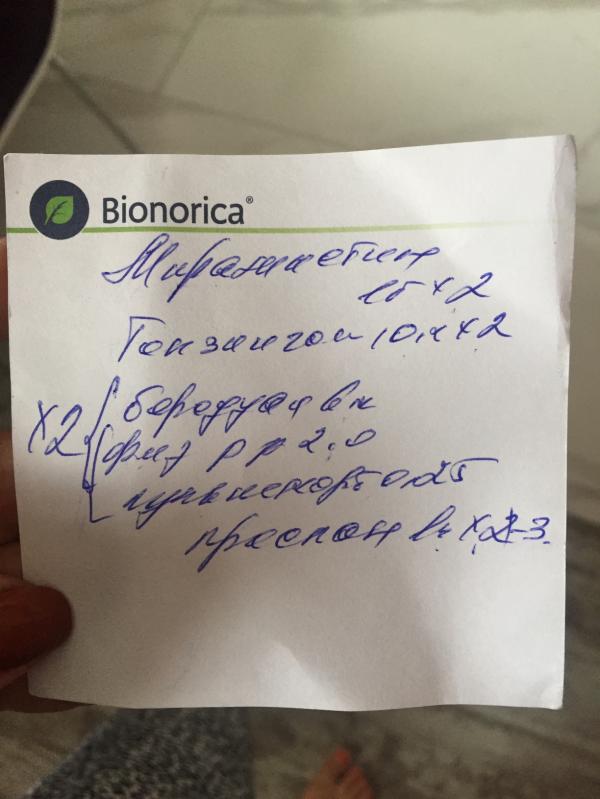 Bionorica®
Мирамистин
1б х 2
Тонзилгон 10,к х 2
х2 беродуал 8 к
физ р р 2.0
пульмикорт 0.25
проспан х 2-3